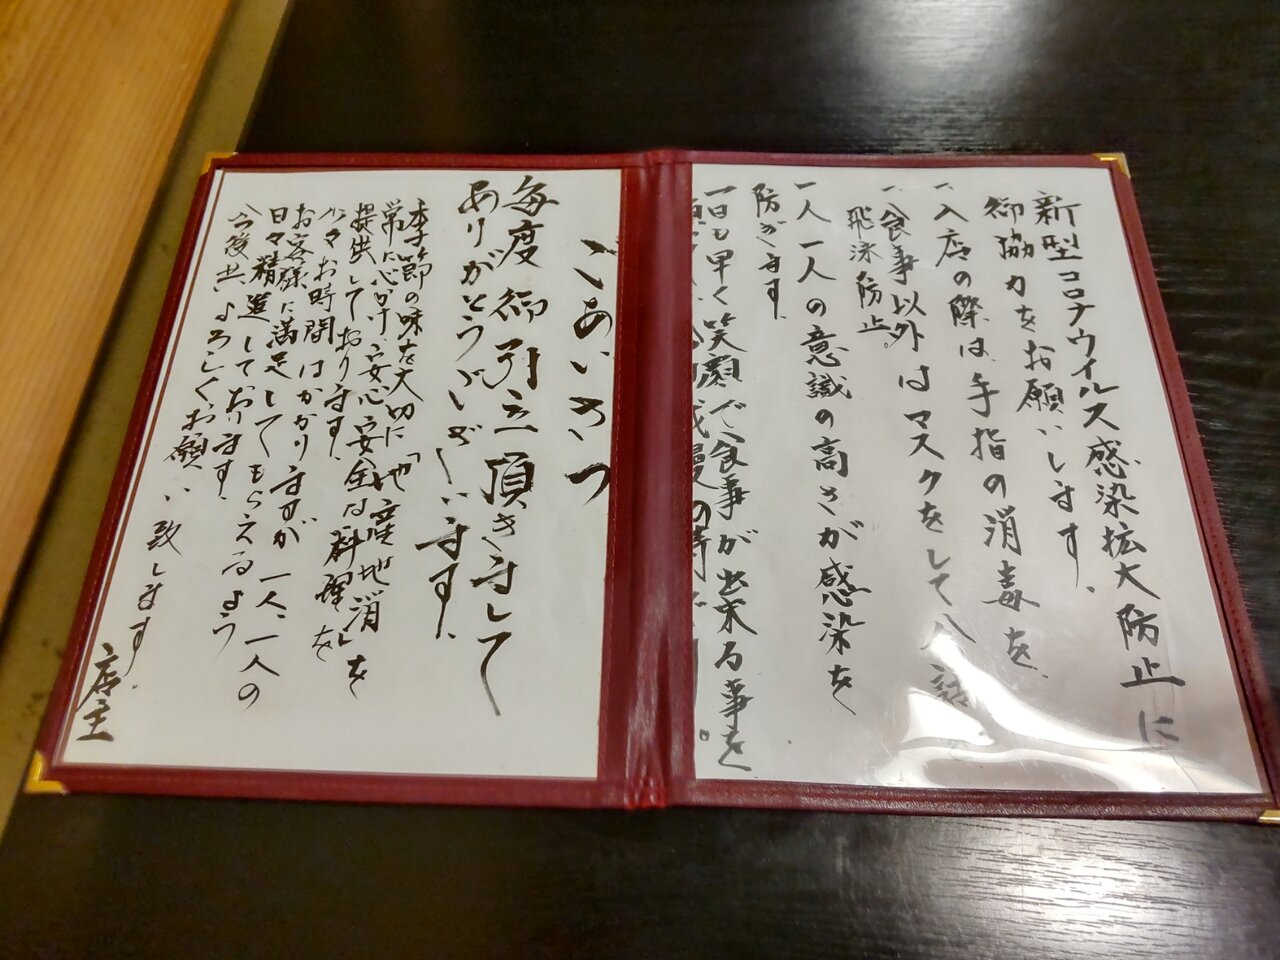 新型コロナウイルス感染拡大防止に
御協力をお願いします。
一、入店の際は手指の消毒を、
一、食事以外はマスクをして会話
飛沫防止。
一人一人の意識の高さが感染を
防ぎます。
一日も早く笑顔で食事が出来る事を
ごあいさつ
毎度御引立頂きまして
ありがとうございます。
季節の味を大切に「地産地消」を
常に心がけ、安心安全な料理を
提出しております。
少々お時間はかかりますが一人、一人の
お客様に満足してもらえるよう
日々精進しております。
今後共よろしくお願い致します。
店主